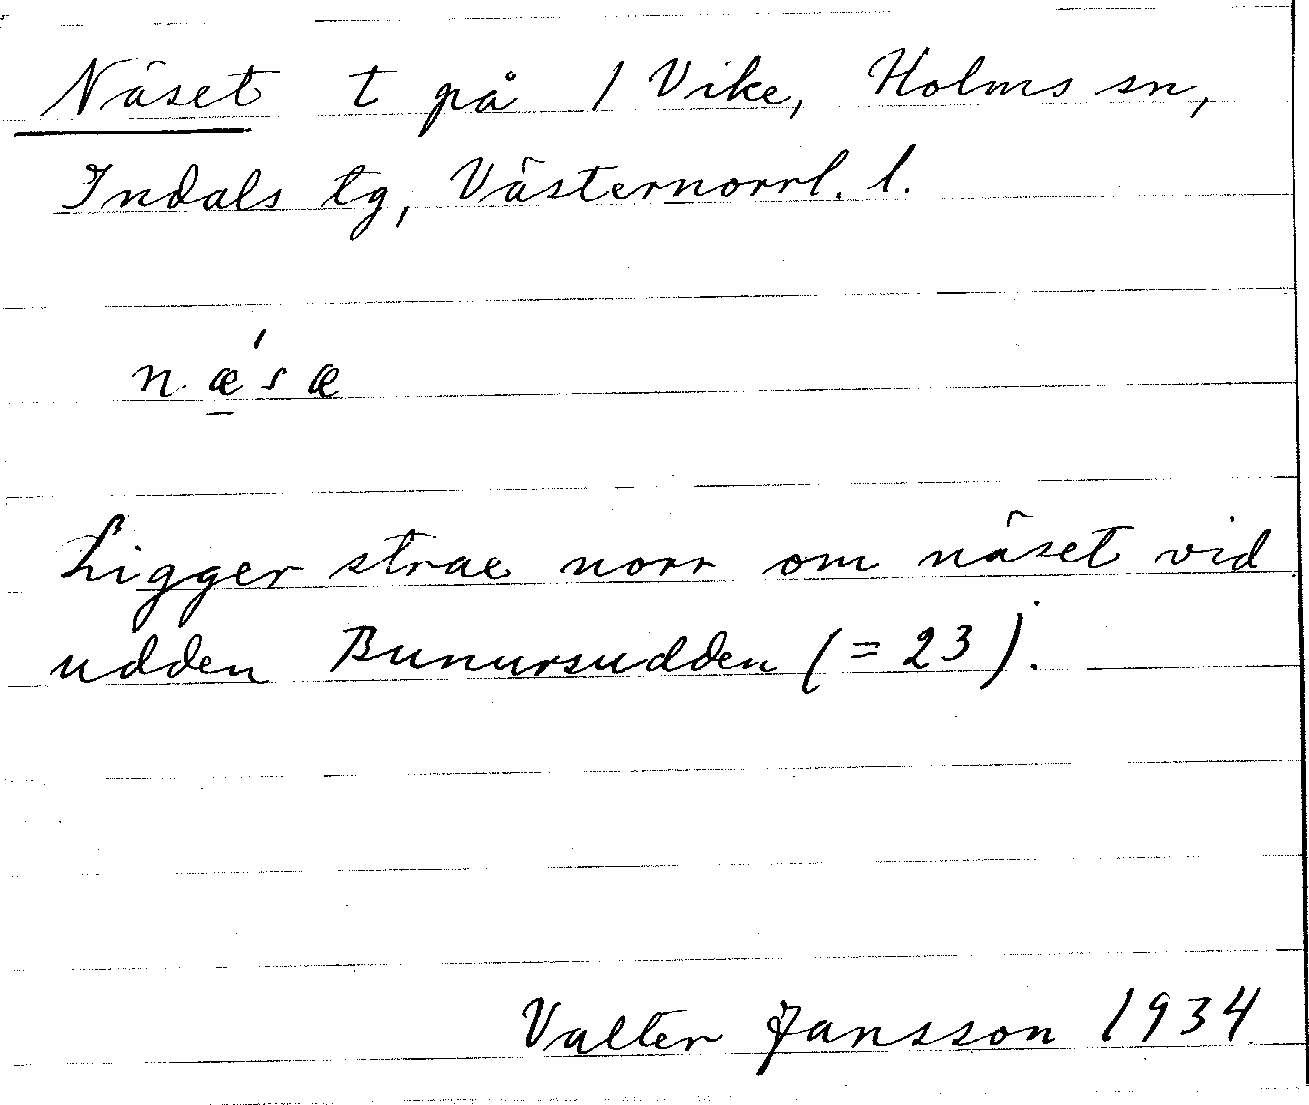 Näset t på 1 Vike, Holms sn,
Indals tg, Västernorrl. l.
næ̲´sæ
Ligger strax norr om näset vid
udden Bunursudden (= 23).
Valter Jansson 1934